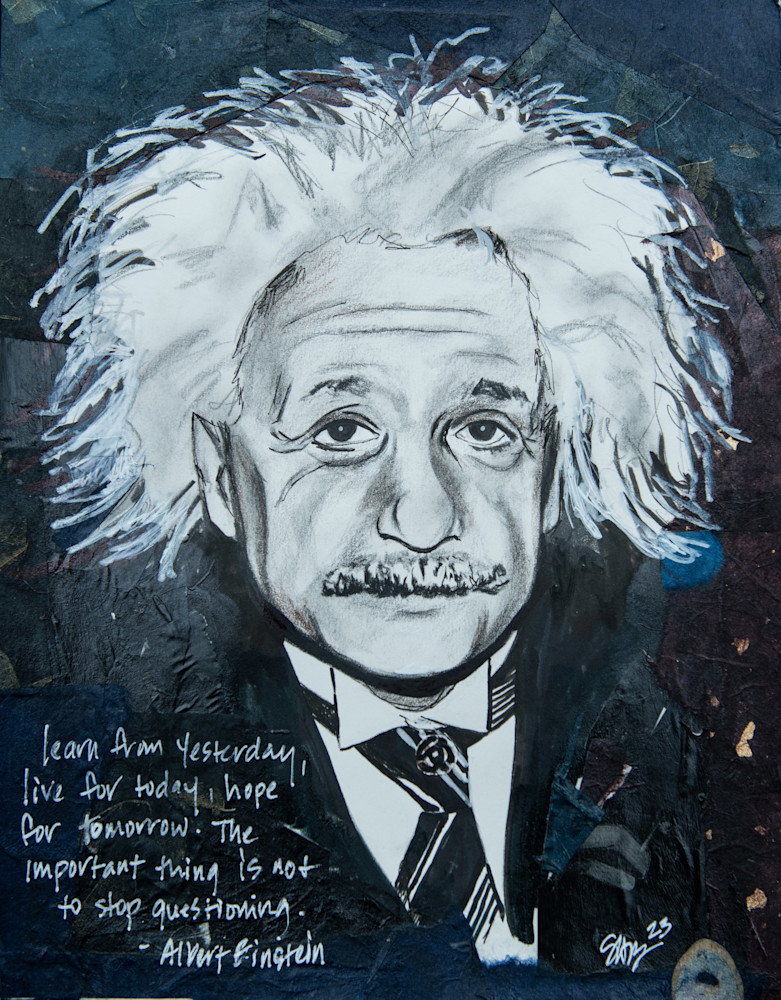 learn from yesterday,
live for today, hope
for tomorrow. The
important thing is not
to stop questioning.
- Albert Einstein
23